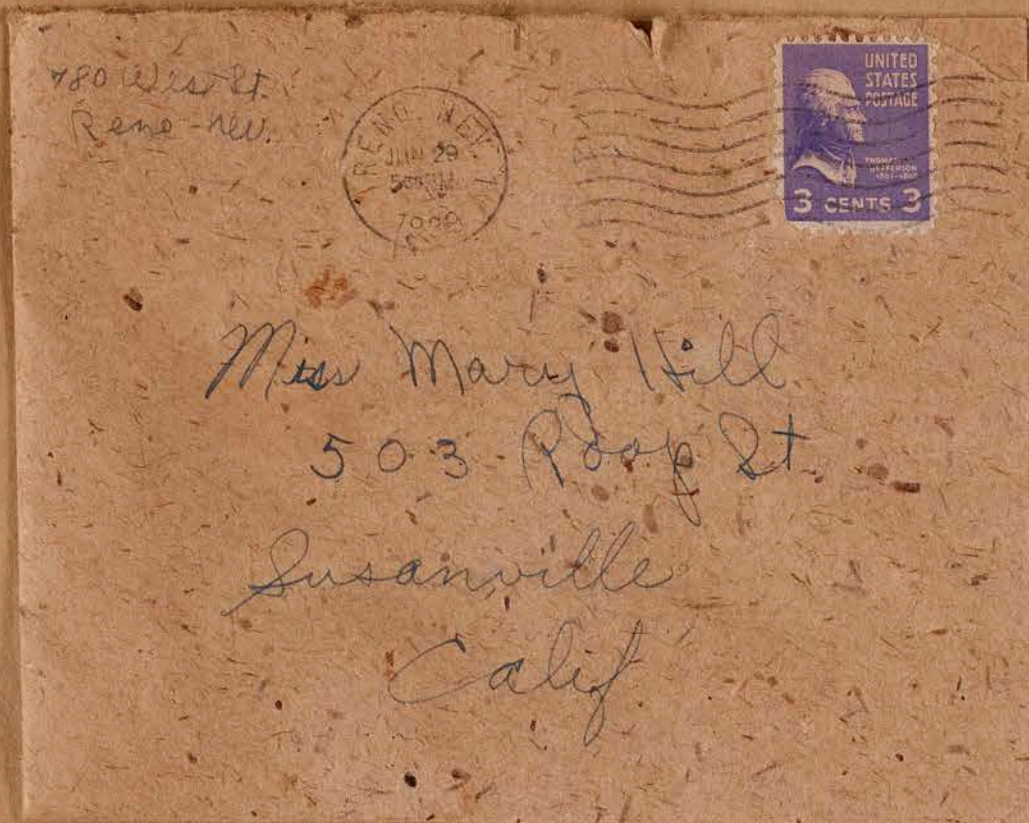 780 West St.
Reno - Nev.
RENO, NEV.
JUN 29
5 PM
UNITED
STATES
POSTAGE
THOMAS
JEFFERSON
1801-1809
3 CENTS 3
Miss Mary Hill
503 Roop St.
Susanville
Calif